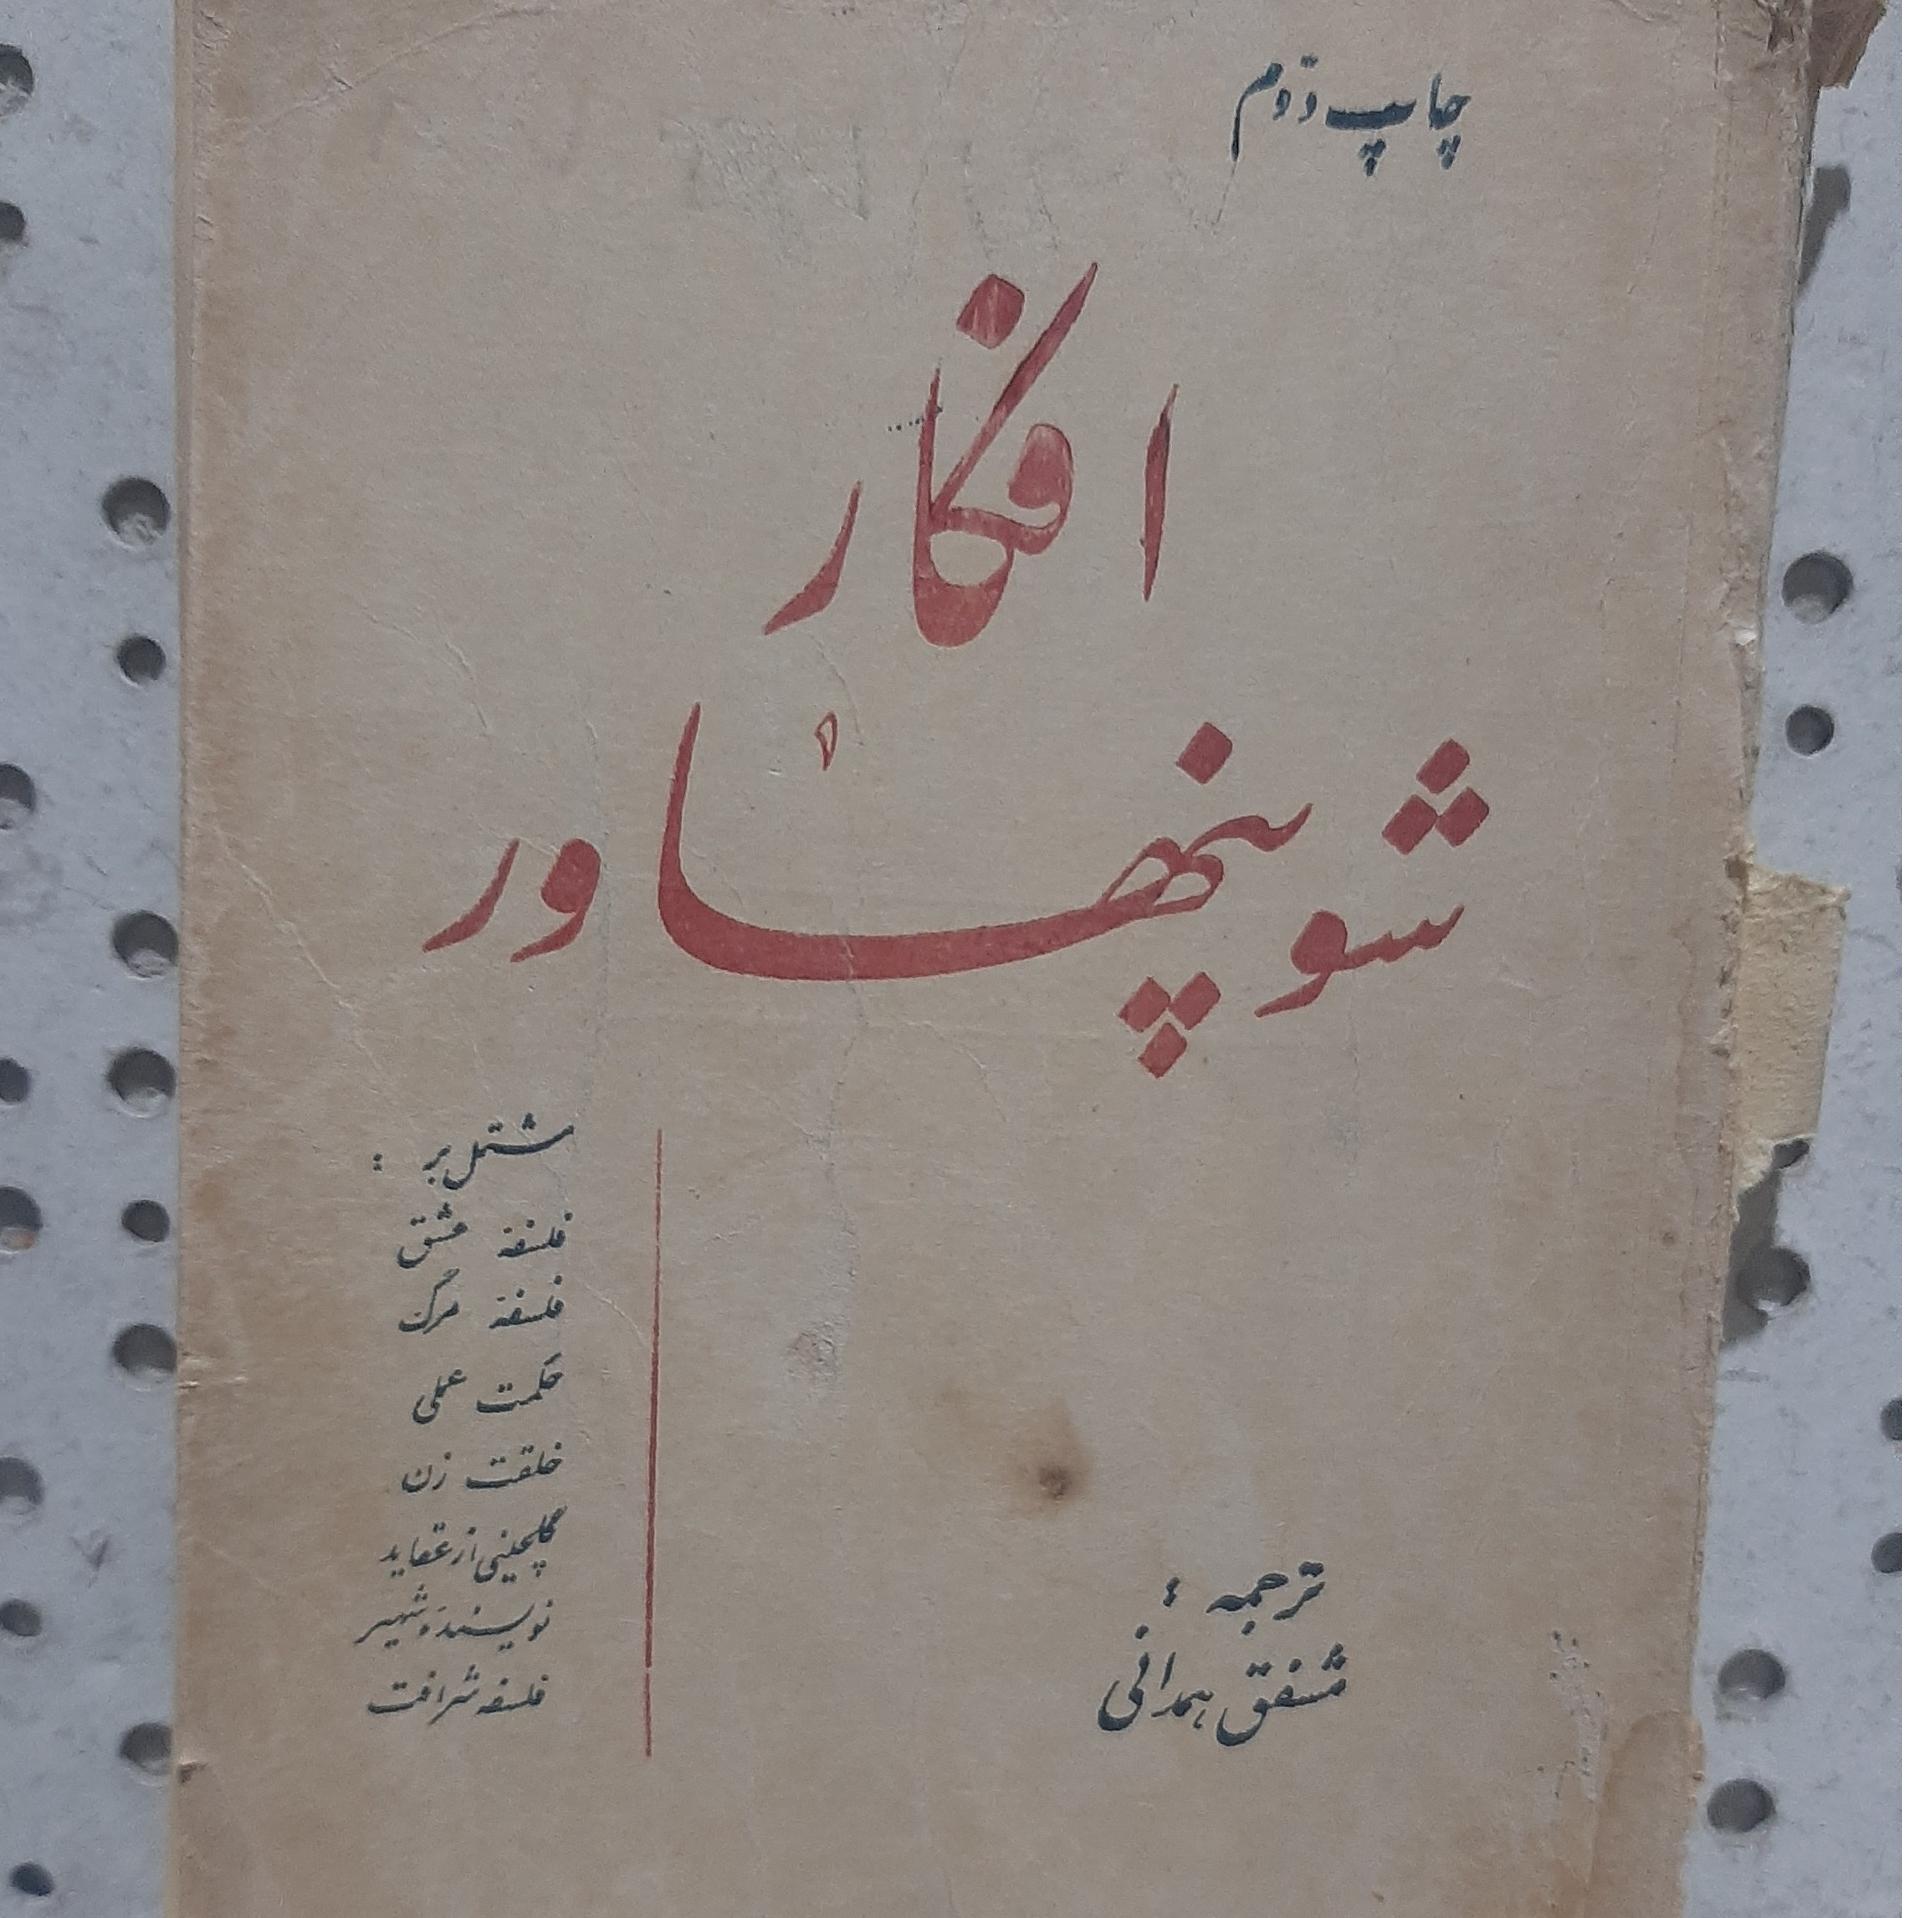 چاپ دوّم
افکار
شوپنهاور
مشتمل بر :
فلسفهٔ عشق
فلسفهٔ مرگ
حکمت عملی
خلقت زن
گلچینی از عقاید
نویسنده شهیر
فلسفه شرافت
ترجمه :
مشفق همدانی